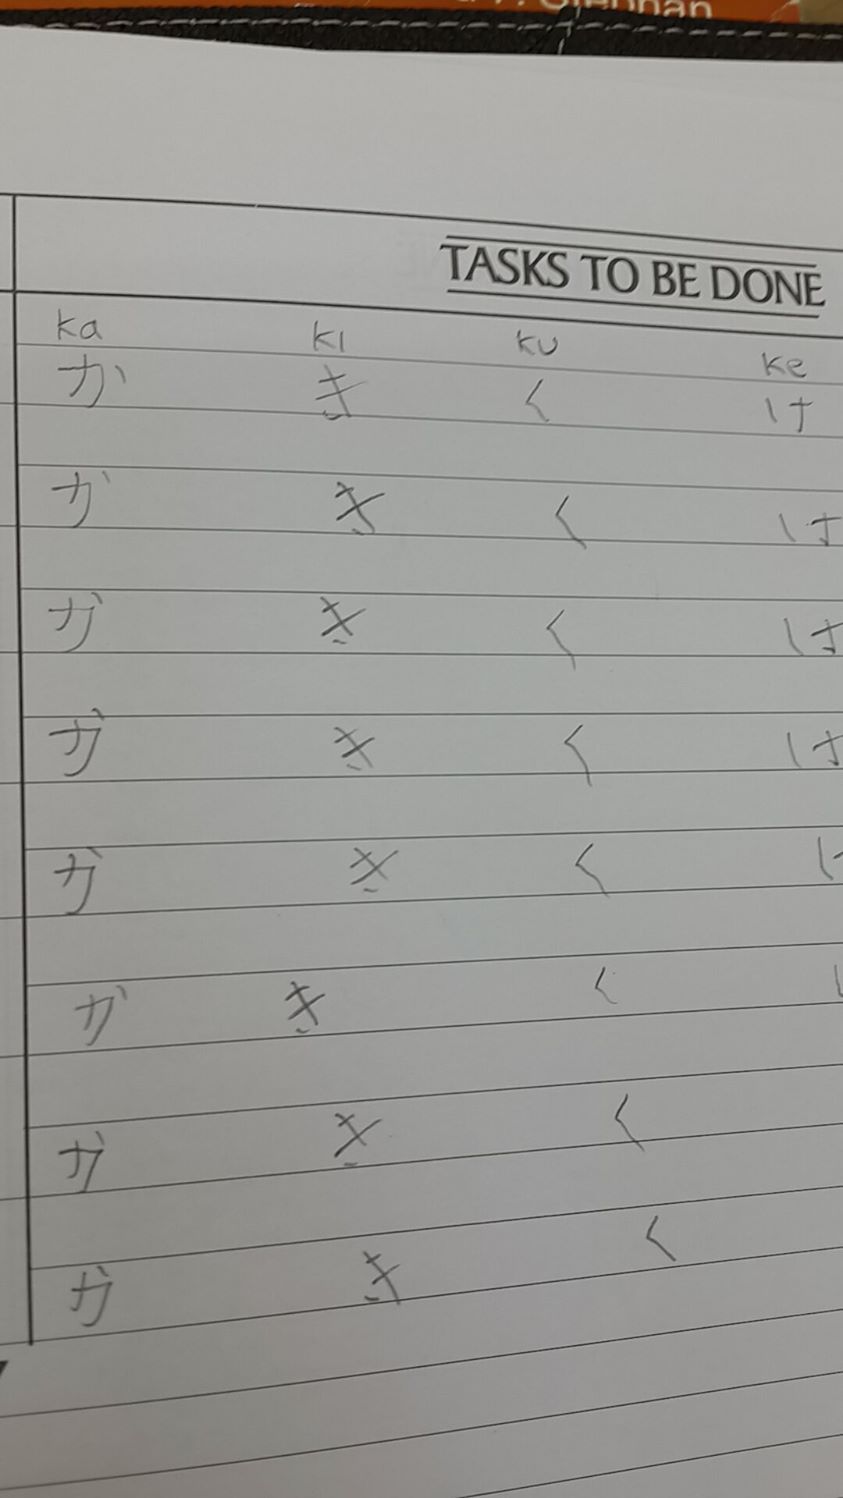 TASKS TO BE DONE
ka ki ku ke
か き く け
か き く け
か き く け
か き く け
か き く
か き く
か き く
か き く